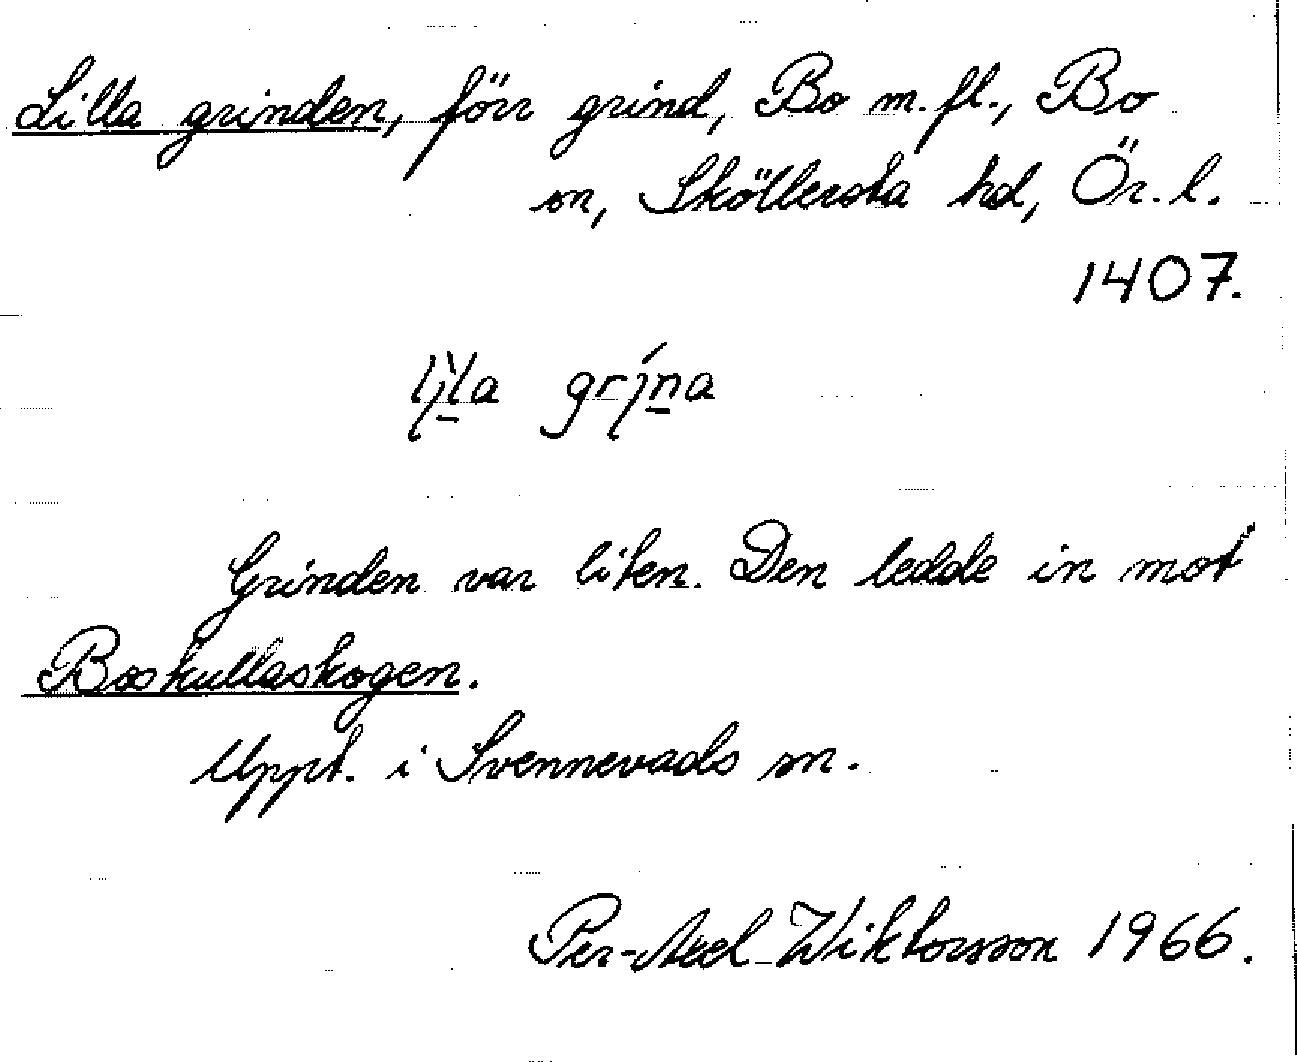 Lilla grinden, förr grind, Bo m.fl., Bo
sn, Sköllersta hd, Ör. l.
1407.
lila grína
Grinden var liten. Den ledde in mot
Boskullaskogen.
Uppt. i Svennevads sn.
Per-Axel Wiktorsson 1966.